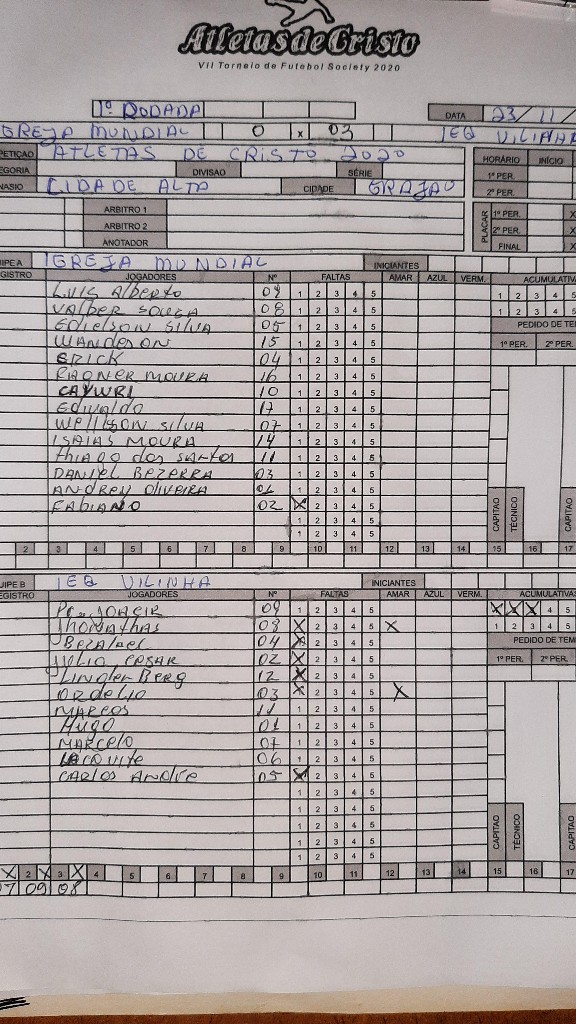 Atletas de Cristo
VII Torneio de Futebol Society 2020
1º RODADA
DATA 23/11/
GREJA MUNDIAL 0 x 03 IEQ VILINHA
PETIÇÃO ATLETAS DE CRISTO 2020 HORÁRIO INÍCIO
EGORIA DIVISAO SÉRIE 1º PER.
NASIO CIDADE ALTA CIDADE GRAJAÚ 2º PER.
ARBITRO 1 PLACAR 1º PER. X
ARBITRO 2 2º PER. X
ANOTADOR FINAL X
UIPE A IGREJA MUNDIAL INICIANTES
GISTRO JOGADORES Nº FALTAS AMAR AZUL VERM. ACUMULATIVA
LUIS Alberto 09 1 2 3 4 5 1 2 3 4 5
VALBER SOUZA 08 1 2 3 4 5 1 2 3 4 5
Edielson SILVA 05 1 2 3 4 5 PEDIDO DE TEM
WANDERSON 15 1 2 3 4 5 1º PER. 2º PER.
ERICK 04 1 2 3 4 5
RAGNER MOURA 16 1 2 3 4 5
CAYWRI 10 1 2 3 4 5
Edivaldo 17 1 2 3 4 5
WELLISON SILVA 07 1 2 3 4 5
ISAIAS MOURA 14 1 2 3 4 5
thiago dos santos 11 1 2 3 4 5
DANIEL BEZERRA 03 1 2 3 4 5
ANDREY OLIVEIRA 01 1 2 3 4 5
FABIANO 02 X 2 3 4 5
1 2 3 4 5
1 2 3 4 5
CAPITAO TÉCNICO CAPITAO
2 3 4 5 6 7 8 9 10 11 12 13 14 15 16 17
UIPE B IEQ VILINHA INICIANTES
EGISTRO JOGADORES Nº FALTAS AMAR AZUL VERM. ACUMULATIVAS
Pr. JOACIR 09 1 2 3 4 5 X X X 4 5
Jhonathas 08 X 2 3 4 5 X 1 2 3 4 5
Bezaleel 04 X 2 3 4 5 PEDIDO DE TEM
JULIO CESAR 02 X 2 3 4 5 1º PER. 2º PER.
LindlerBerg 12 X 2 3 4 5
ORdelio 03 X 2 3 4 5 X
MARCOS 11 1 2 3 4 5
Hugo 01 1 2 3 4 5
MARCELO 07 1 2 3 4 5
06 1 2 3 4 5
CARLOS ANDRE 05 X 2 3 4 5
1 2 3 4 5
1 2 3 4 5
1 2 3 4 5
1 2 3 4 5
1 2 3 4 5
CAPITAO TÉCNICO CAPITAO
X 2 X 3 X 4 5 6 7 8 9 10 11 12 13 14 15 16 17
07 09 08